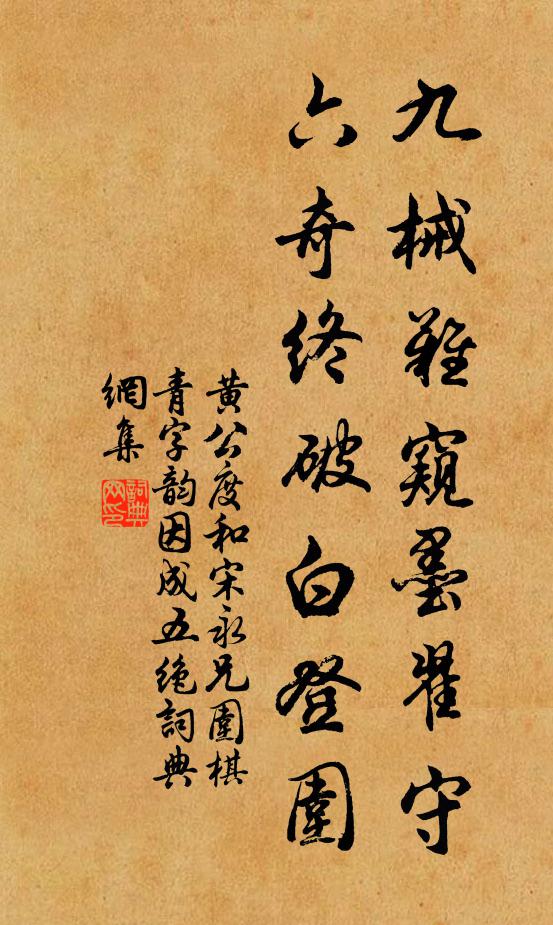 九械難窺墨翟守
六奇終破白登圍
黄公度和宋永兄圍棋
青字韵因成五绝詞典
網集
詞典
网印